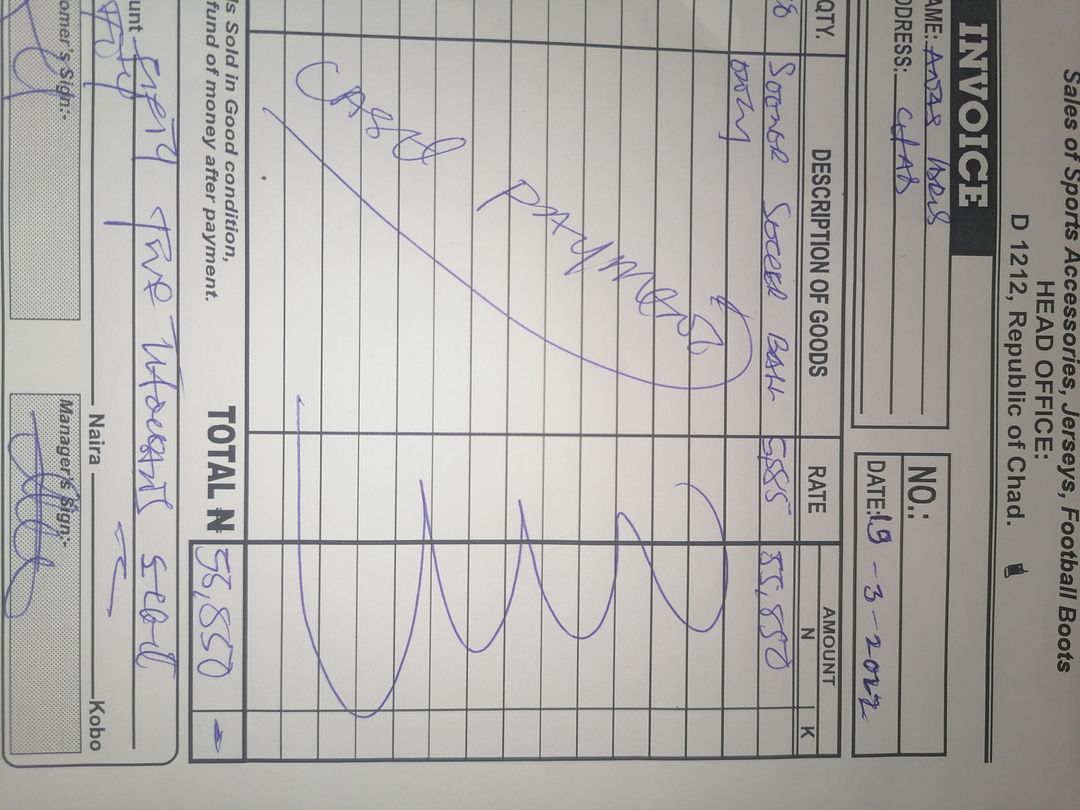 Sales of Sports Accessories, Jerseys, Football Boots
HEAD OFFICE:
D 1212, Republic of Chad.
INVOICE
NO.:
AME:
DDRESS: CHAD
DATE: 19 - 3 - 2022
QTY. DESCRIPTION OF GOODS RATE AMOUNT
N K
SOCCER BALL 55,850
ONLY
CASH PAYMENT
ls Sold in Good condition,
fund of money after payment.
TOTAL N 55,850 -
unt Fifty Five thousand
Naira Kobo
omer's Sign:- Manager's Sign:-